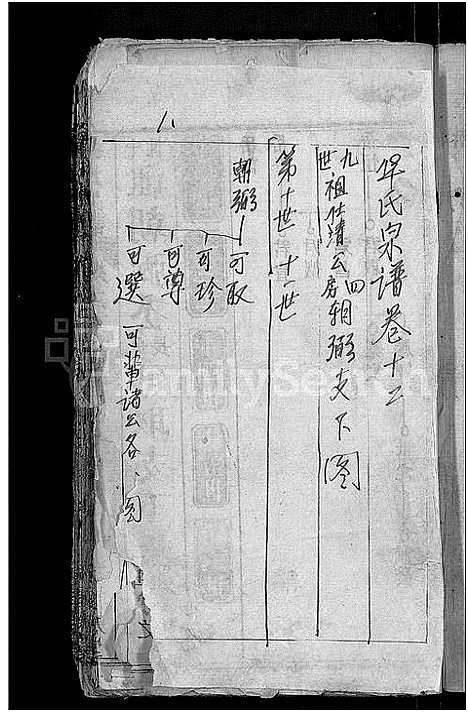 华氏宗谱卷十二
九世祖仕清公房四朝弼支下图
第十世 十一世
朝弼 可取
可珍
可尊
可選 可輩诸公各、图
FamilySearch